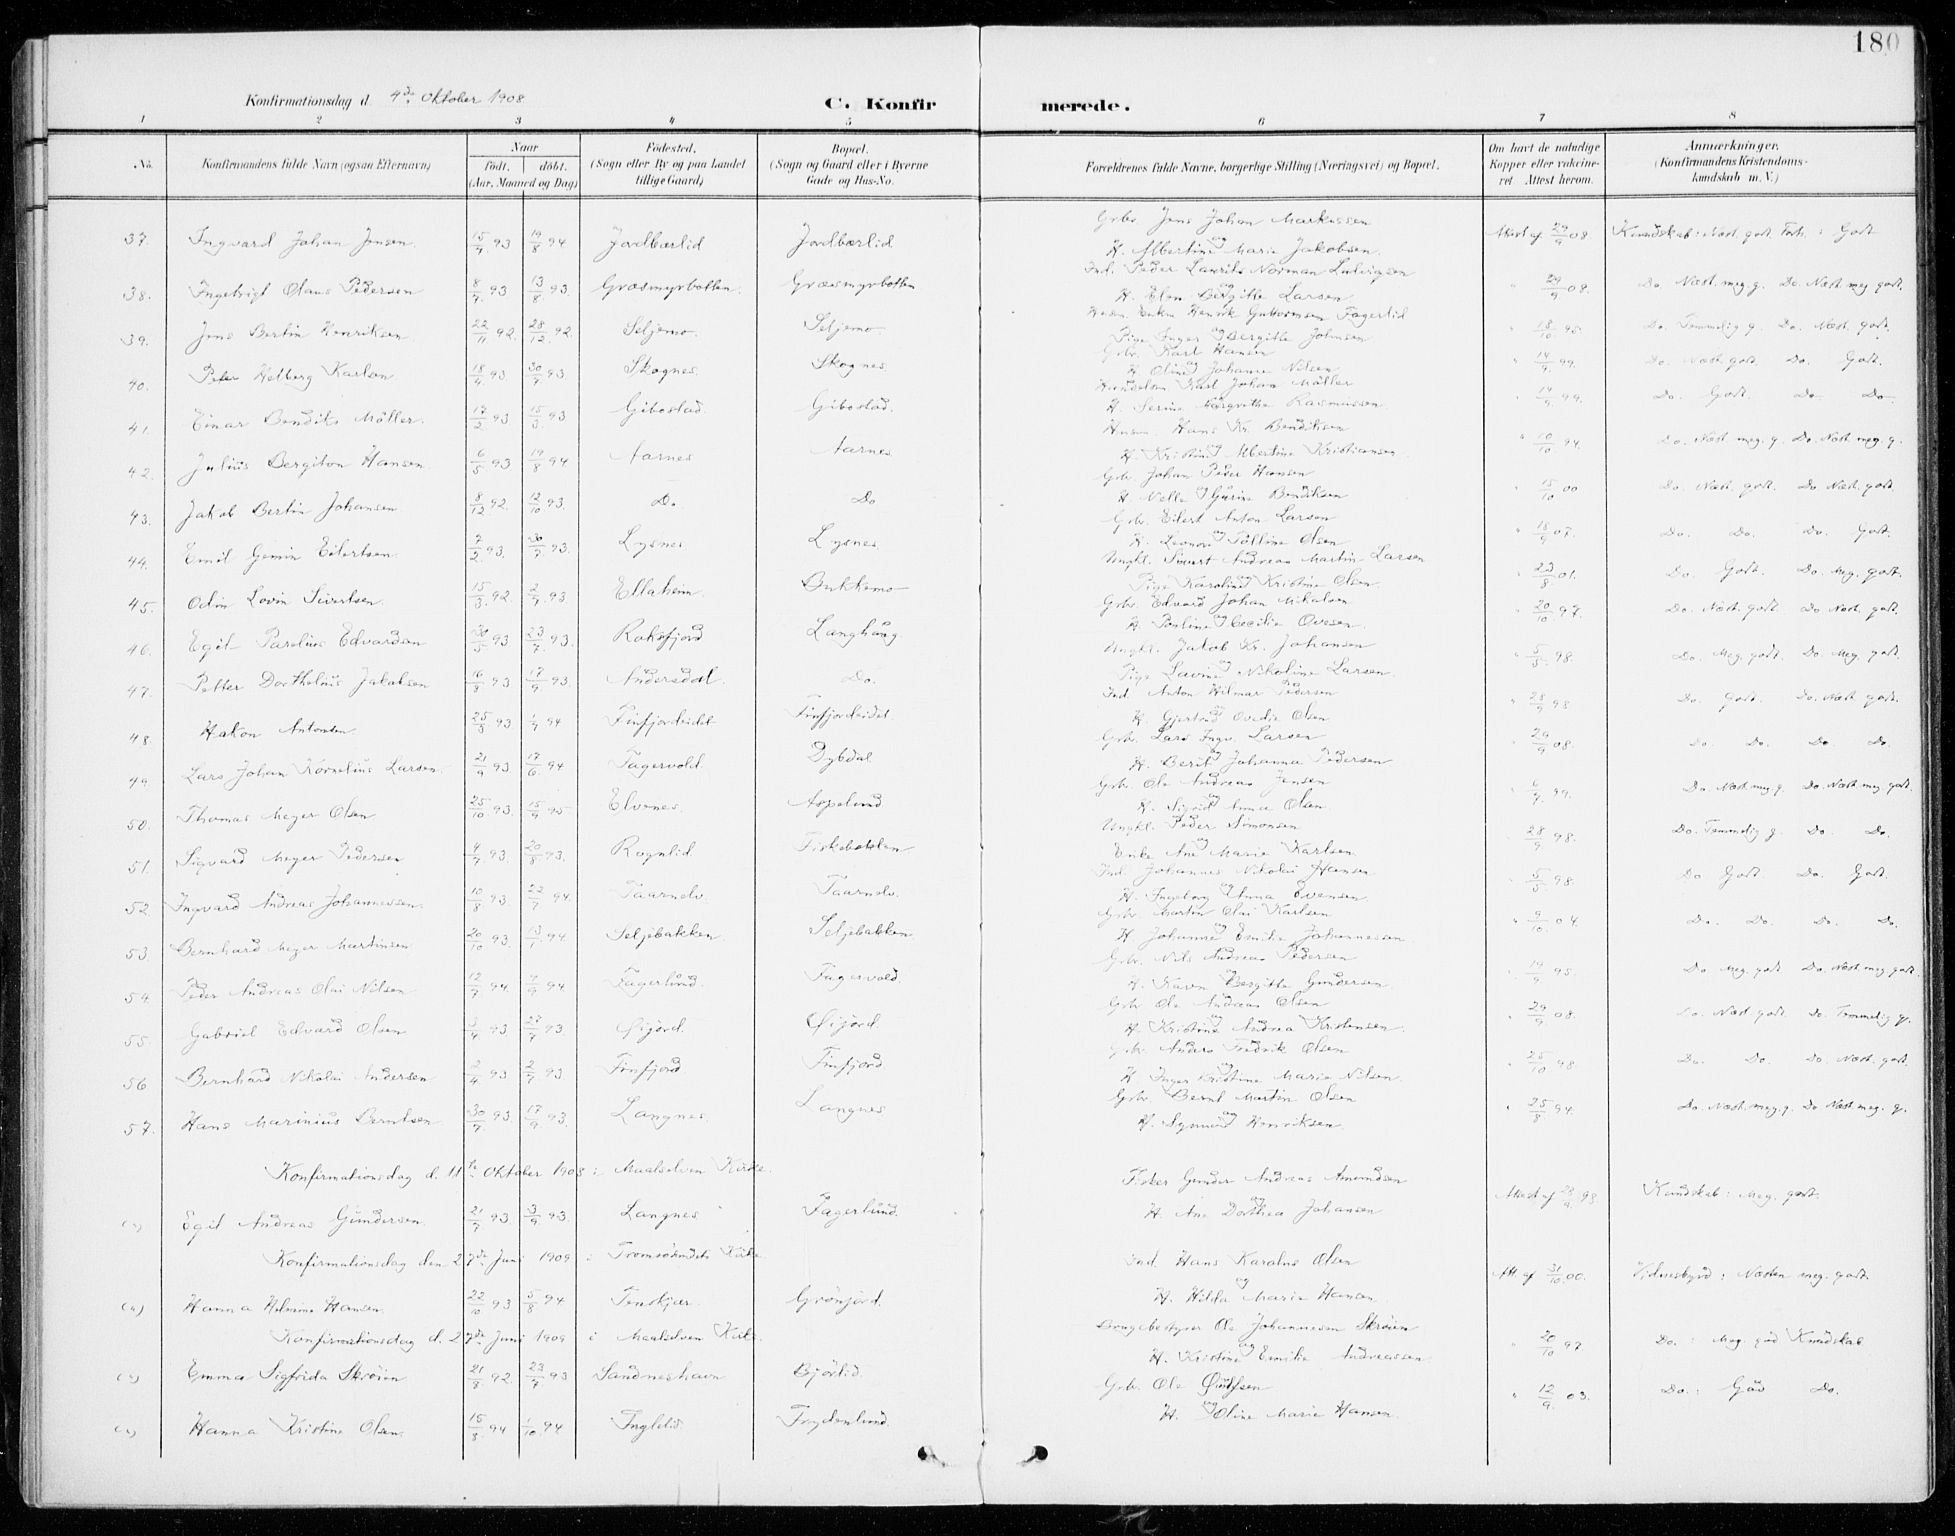 180
Konfirmationsdag d. 4de Oktober 1908 C. Konfir merede.
1 2 3 4 5 6 7 8
No. Konfirmandens fulde Navn (ogsaa Efternavn) Naar født. døbt. (Aar, Maaned og Dag) Fødested. (Sogn eller By og paa Landet tillige Gaard) Bopæl. (Sogn og Gaard eller i Byerne Gade og Hus-No. Forældrenes fulde Navne, borgerlige Stilling (Næringsvei) og Bopæl. Om havt de naturlige Kopper eller vakcineret Attest herom. Anmærkninger. (Konfirmandens Kristendomskundskab m. V.)
37. Ingvard Johan Jensen. 15/9 93 19/8 94 Jordbærlid Jordbærlid Gbr. Jens Johan Markussen og H. Albertine Marie Jakobsen. Attest af 29/9 08 Kundskab: Næst. godt Forh.: Godt
38. Ingebrigt Olaus Pedersen 8/7 93 13/8 93. Græsmyrbotten. Græsmyrbotten Ind. Peder Laurits Norman Ludvigsen og H. Elen Bergitte Larsen " 29/9 08. Do. Næst. meg. g. Do. Næst meg godt.
39. Jens Bertin Henriksen 22/11 92. 28/12 92. Seljemo Seljemo Husm. Enkm Henrik Guttormsen Fagerlid og Pige Inger Bergitte Johnsen " 18/10 95. Do. Temmelig g. Do. Næst. godt.
40. Peter Helberg Karlsen 18/4 93 30/7 93 Skognes Skognes Gbr. Karl Hansen og H. Oline Johanne Nilsen " 14/9 99. Do. Næst. godt Do. Godt.
41. Einar Bendiks Möller. 17/2 93 15/3 93. Gibostad. Gibostad. Handelsm Karl Johan Möller og H. Serine Margrethe Rasmussen " 14/9 99. Do. Godt. Do. Do.
42. Julius Bergiton Hansen. 6/5 93 19/8 94 Aarnes Aarnes Husm. Hans Kr. Bendiksen og H. Kristine Albertine Kristiansen. " 10/10 94. Do. Næst meg. g. Do. Næst meg. g.
43. Jakob Bertin Johansen. 8/12 92. 12/10 93. Do. Do Gbr. Johan Peder Hansen og H. Nella Gurine Bendiksen " 15/10 00 Do. Næst. godt. Do Næst. godt.
44. Emil Gemin Eilertsen. 7/2 93. 30/7 93. Lysnes Lysnes Gbr. Eilert Anton Larsen og H. Leonore Palline Olsen " 18/9 07. Do. Do. Do. Godt.
45. Odin Lovin Sivertsen. 15/3 92. 2/7 93 Ellaheim Bukkemo Ungkl. Sivert Andreas Martin Larsen og Pige Karoline Kristine Olsen. " 23/8 01. Do. Godt. Do. Meg. godt.
46. Egil Parelius Edvardsen 30/5 93 23/7 93. Roksfjord Langhaug Gbr. Edvard Johan Mikalsen og H. Pauline Cecilie Ovesen. " 20/10 97. Do. Næst. godt. Do Næst. godt.
47. Petter Dorthelius Jakobsen 16/8 93 17/9 93. Andersdal. Do. Ungkl. Jakob Kr. Johansen og Pige Lavine Nikoline Larsen " 5/5 98. Do. Meg. godt. Do. Meg. godt.
48. Hakon Antonsen 25/8 93 1/7 94 Finfjordeidet Finfjordeidet. Ind. Anton Hilmar Pedersen og H. Gjertrud Ovedie Olsen " 28/9 98 Do. Godt. Do. Næst. godt
49. Lars Johan Kornelius Larsen. 21/9 93 17/6 94 Fagervold. Dybdal. Gbr. Lars Ingv. Larsen og H. Berit Johanna Pedersen " 29/9 08. Do. Do. Do. Do.
50. Thomas Meyer Olsen 25/10 93. 15/9 95 Elvenes. Aspelund. Gbr. Ole Andreas Jensen og H. Sigrid Anna Olsen " 6/7 99. Do. Næst meg. g Do. Næst meg. godt.
51. Sigvard Meyer Pedersen 4/7 93. 20/8 93. Rognlid Fiskebakken Ungkl. Peder Simonsen og Enke Ane Marie Karlsen " 28/9 98. Do. Temmelig g. Do. Do.
52. Ingvard Andreas Johannessen. 10/8 93 22/7 94. Taarnelv. Taarnelv. Ind. Johannes Nikolai Hansen og H. Ingeborg Anna Evensen " 5/5 98. Do Godt. Do. Godt.
53. Bernhard Meyer Martinsen 20/10 93. 13/7 94. Seljebakken Seljebakken. Gbr. Martin Olai Karlsen og H. Johanne Emilie Johannessen. " 9/10 04. Do. Do. Do. Do.
54. Peder Andreas Olai Nilsen 12/7 94. 7/9 94 Fagerlund. Fagervold. Gbr. Nils Andreas Pedersen og H. Karen Bergitte Gundersen " 19/9 95 Do Meg. godt Do. Næst. meg. godt.
55. Gabriel Edvard Olsen 3/4 93 23/7 93. Øijord. Øijord. Gbr. Ole Andreas Olsen og H. Kristine Andrea Kristensen. " 29/9 08. Do. Næst. godt. Do. Temmelig g.
56 Bernhard Nikolai Andersen 2/4 93 2/7 93 Finfjord Finfjord. Gbr. Anders Fredrik Olsen og H. Inger Kristine Marie Nilsen. " 25/10 98 Do. Do. Do. Næst. godt.
57. Hans Marinius Berntsen. 30/7 93. 17/9 93. Langnes. Langnes Gbr. Bernt Martin Olsen og H. Synund Henriksen. " 25/8 94. Do. Næst. meg. g. Do. Næst meg. g.
Konfirmationsdag d. 11te Oktober 1908 i Maalselven Kirke.
Egil Andreas Gundersen. 21/7 93. 3/9 93. Langnes Fagerlund. Fisker Gunder Andreas Amundsen og H. Ane Dorthea Johansen Attest af 98 Kundskab: Meg. godt.
Konfirmationsdag den 27de Juni 1909 i Tromsösundets Kirke.
Hanna Helmine Hansen. 22/10 93 5/8 94 Tenskjær. Grönjord. Ind. Hans Karolus Olsen og H. Hilda Marie Hansen. Att. af 31/10 00. Vidnesbyrd: Næsten meg. godt.
Konfirmationsdag d. 27de Juni 1909 i Maalselven Kirke.
Emma Sigfrida Skröien 21/8 92. 23/7 93 Sandneshavn Björlid. Brugsbestyrer Ole Johannesen Skröien og H. Kristine Emilie Andreassen. " 20/10 97. Do.: Meg. god Kundskab
Hanna Kristine Olsen. 15/8 94 1/10 94 Inglelid. Frydenlund. Gbr. Ole Olufsen og H. Oline Marie Hansen. " 12/9 03. Do.: God Do.